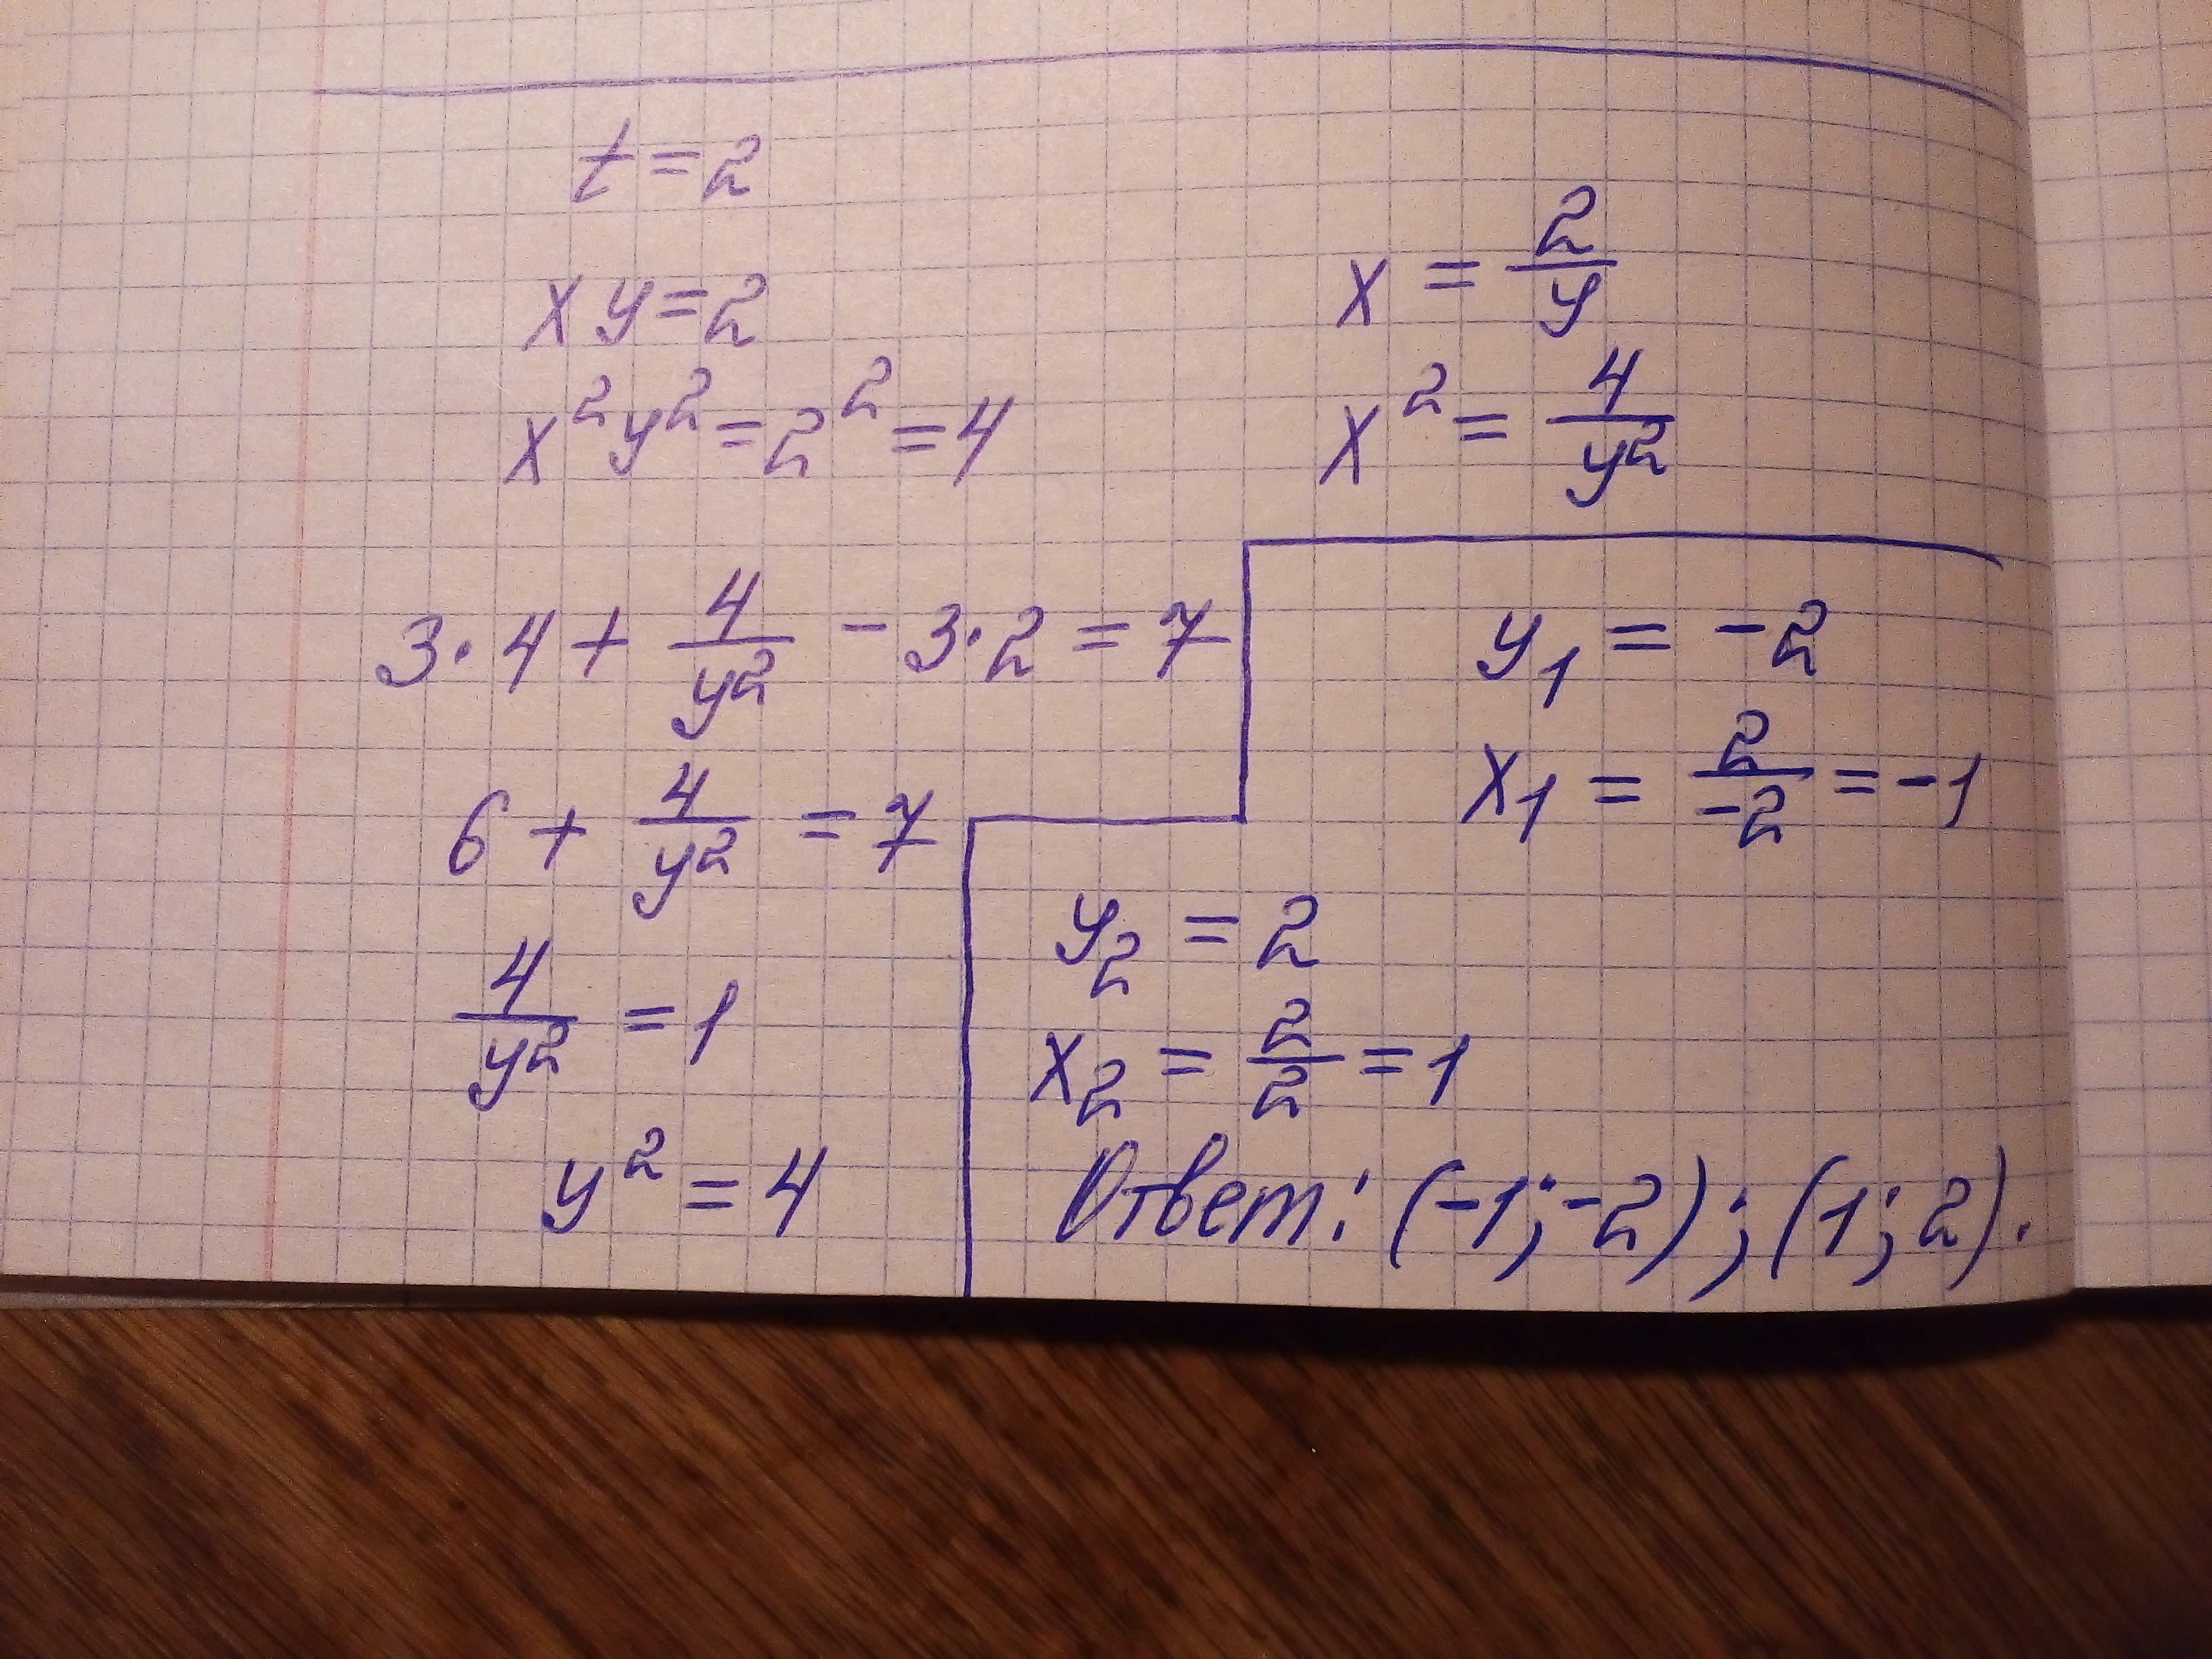 t = 2
xy = 2
x²y² = 2² = 4
x = 2/y
x² = 4/y²
3·4 + 4/y² - 3·2 = 7
6 + 4/y² = 7
4/y² = 1
y² = 4
y₁ = -2
x₁ = 2/-2 = -1
y₂ = 2
x₂ = 2/2 = 1
Ответ: (-1; -2); (1; 2).